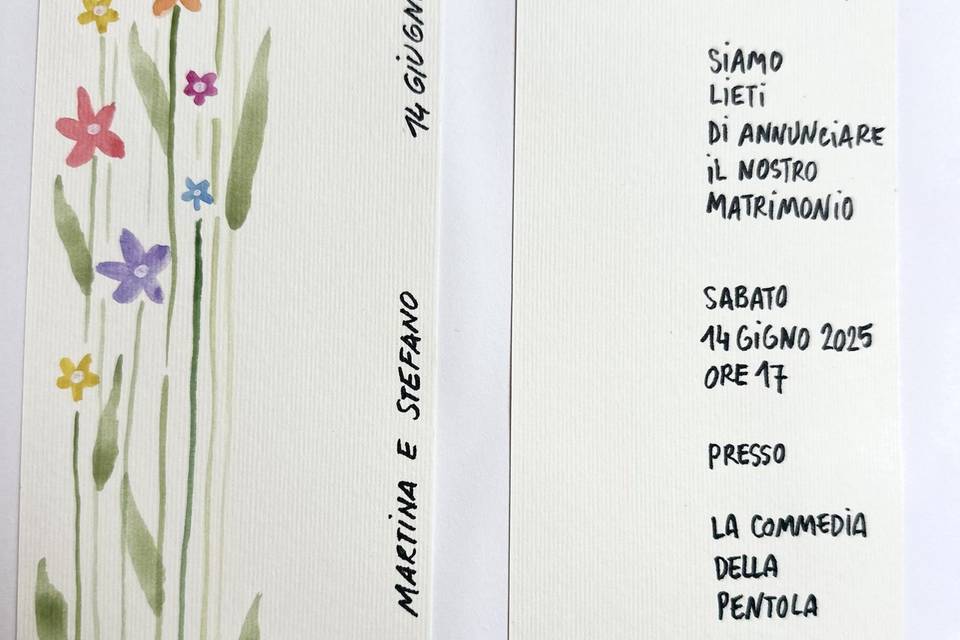 MARTINA E STEFANO
14 GIUGN
SIAMO
LIETI
DI ANNUNCIARE
IL NOSTRO
MATRIMONIO
SABATO
14 GIGNO 2025
ORE 17
PRESSO
LA COMMEDIA
DELLA
PENTOLA